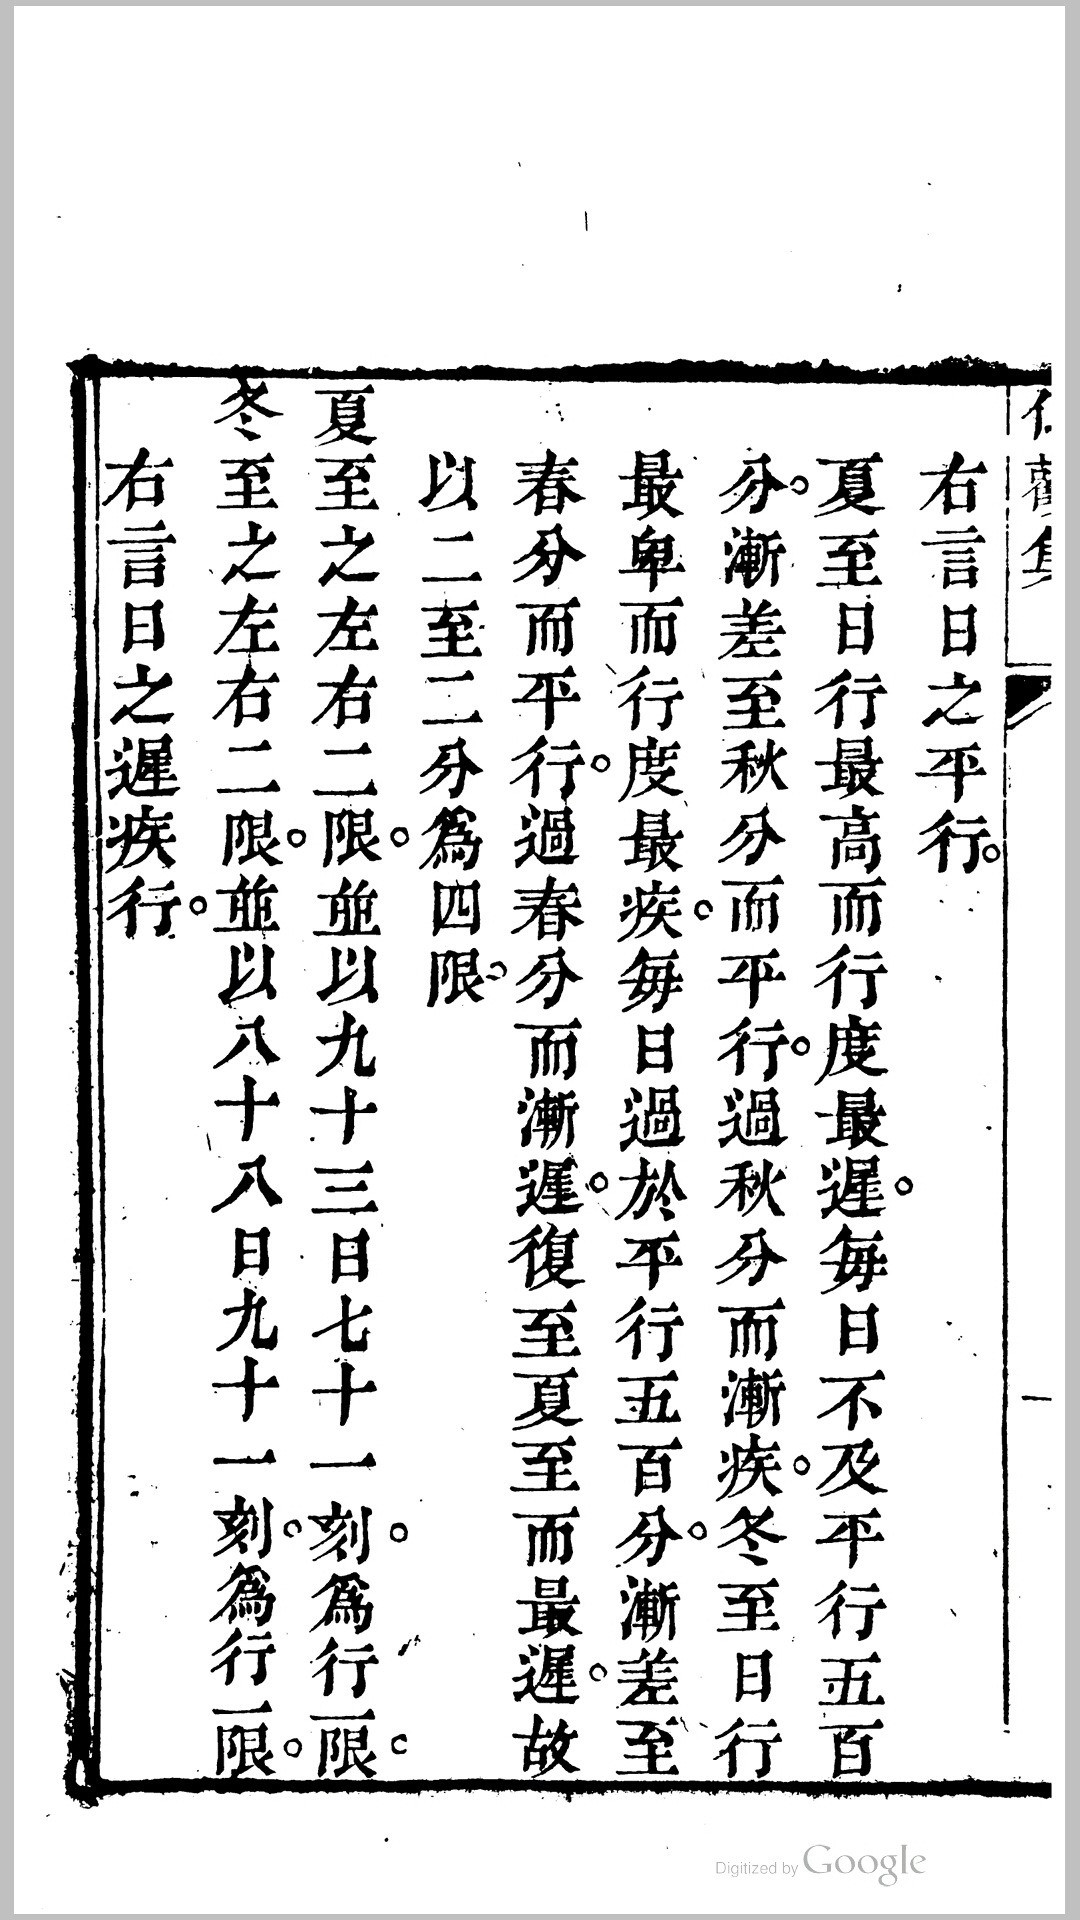 右言日之平行。
夏至日行最高而行度最遲。每日不及平行五百
分。漸差至秋分而平行。過秋分而漸疾。冬至日行
最卑而行度最疾。每日過於平行五百分。漸差至
春分而平行。過春分而漸遲。復至夏至而最遲。故
以二至二分爲四限。
夏至之左右二限。並以九十三日七十一刻。爲行一限。
冬至之左右二限。並以八十八日九十一刻。爲行一限。
右言日之遲疾行。
Digitized by Google